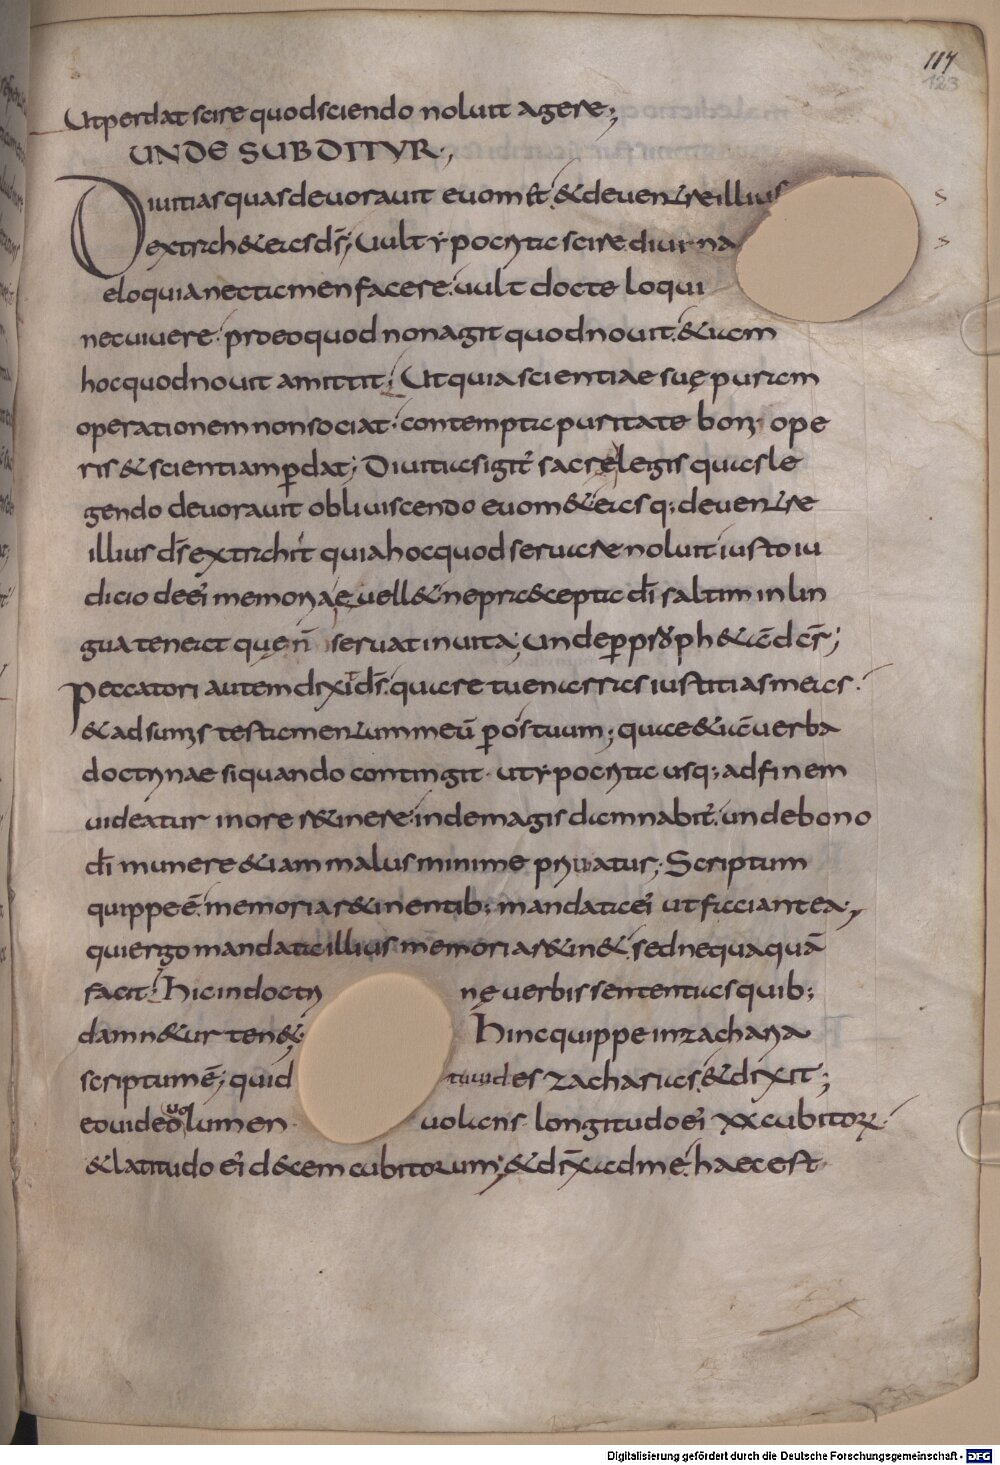 117
123
Ut perdat scire quod sciendo noluit agere;
UNDE SUBDITUR;
Diuitias quas deuorauit euomet & de uentre illius
extrah& eas ds; Uult ypocrita scire diuina
eloquia nec tamen facere. uult docte loqui
nec uiuere. pro eo quod non agit quod nouit. & iam
hoc quod nouit amittit; Ut quia scientiae suę puram
operationem non sociat. contempta puritate boni ope
ris & scientiam perdat; Diuitias igit sacrę legis quas le
gendo deuorauit obliuiscendo euom& eas q; de uentre
illius ds extrahit quia hoc quod seruare noluit iusto iu
dicio de ei memoria euell& ne praecepta di saltim in lin
gua teneat quę n seruat in uita; unde per proph&ā dr;
Peccatori autem dixit ds. quare tu enarras iustitias meas.
& adsumis testamentum meū p os tuum; qui ce&ā uerba
doctrinae si quando contingit. ut ypocrita usq; ad finem
uideatur in ore retinere. inde magis damnabit. unde bono
di munere & iam malus minime priuatur; Scriptum
quippe ē. memoria retinentib; mandata ei ut faciant ea;
qui ergo mandata illius memoria retin&. sed nequaquā
facit. Hic in doctri nę uerbis sententias quib;
damn&ur ten&. Hinc quippe in zacharia
scriptum ē; quid tu uides zacharias. & dixit;
eo uideo uolumen uolans. longitudo ei xx cubitor.
& latitudo ei decem cubitorum; & dix ad me. haec est
Digitalisierung gefördert durch die Deutsche Forschungsgemeinschaft - DFG